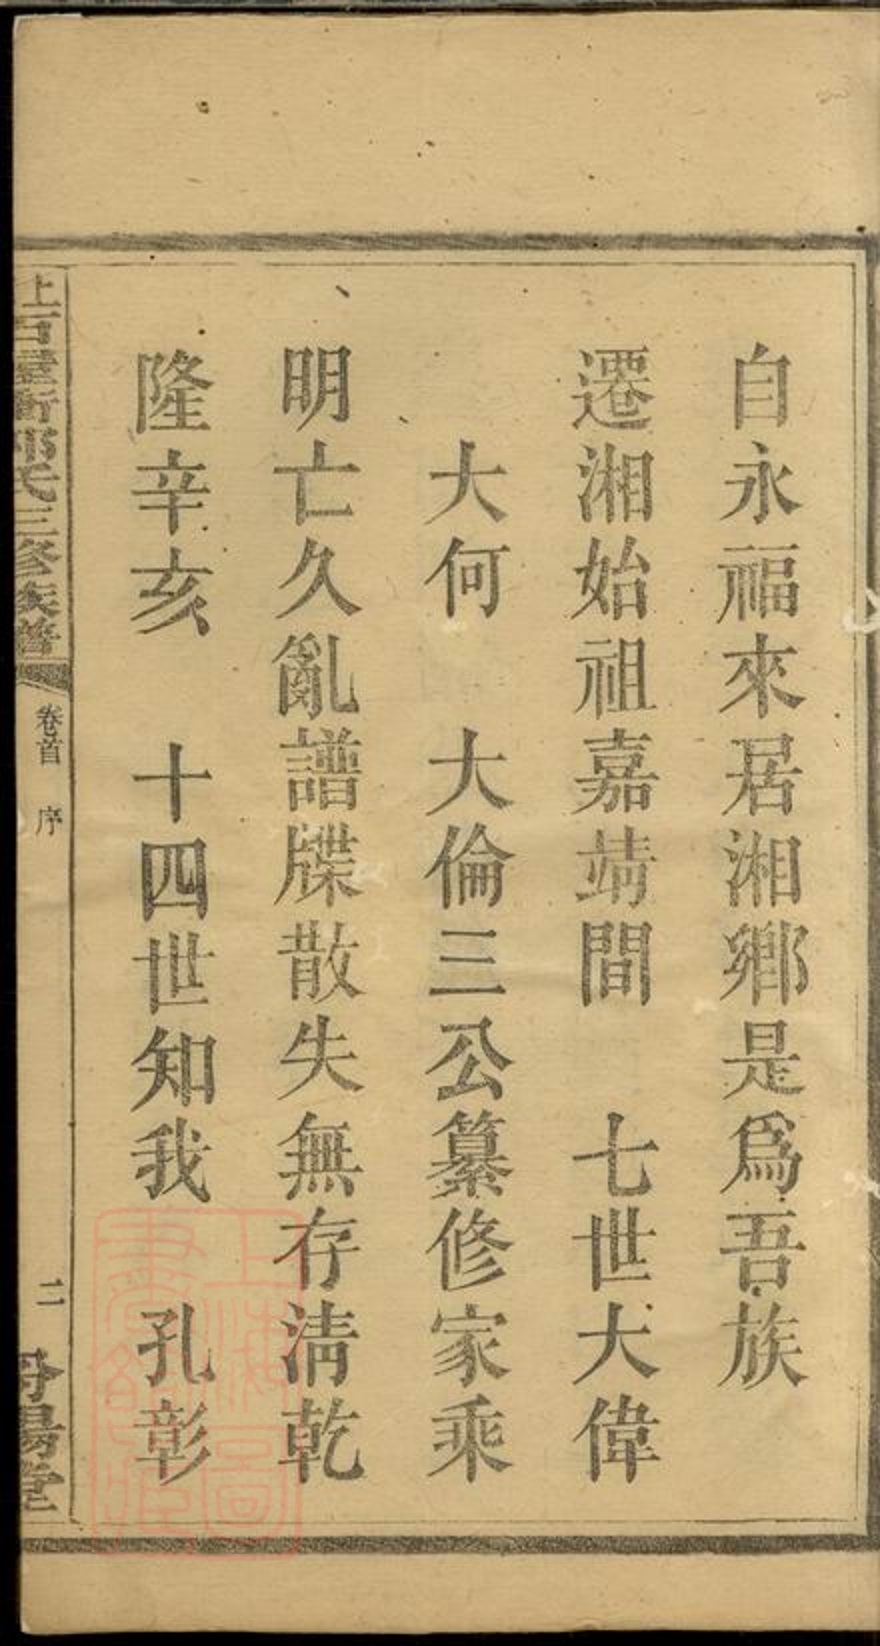 自永福來居湘鄉是爲吾族
遷湘始祖嘉靖間　七世大偉
大何　大倫三公纂修家乘
明亡久亂譜牒散失無存淸乾
隆辛亥　十四世知我　孔彰
氏三修族譜
卷首　序
二
上海圖書館藏